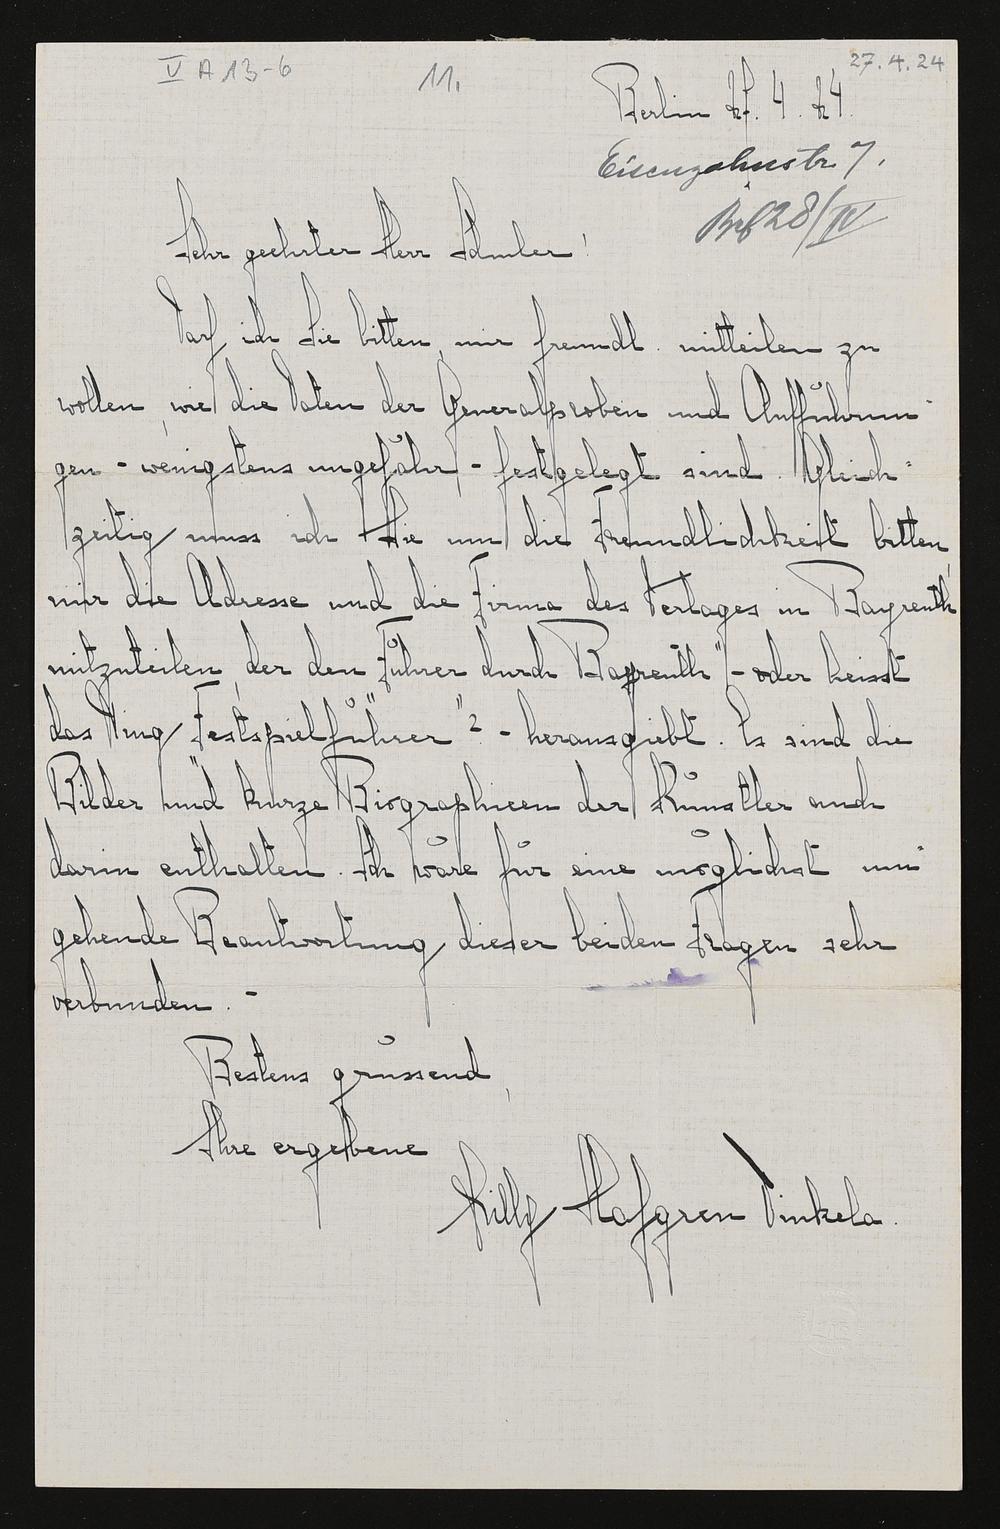 V A 13-6
11.
27.4.24
Berlin 27. 4. 24.
Eisenzahnstr 7.
28/IV
Sehr geehrter Herr Schuler!
Darf ich Sie bitten, mir freundl. mitteilen zu
wollen, wie die Daten der Generalproben und Aufführun-
gen - wenigstens ungefähr - festgelegt sind. Gleich-
zeitig muss ich Sie um die Freundlichkeit bitten,
mir die Adresse und die Firma des Verlages in Bayreuth
mitzuteilen, der den „Führer durch Bayreuth" - oder heisst
das Ding „Festspielführer"? - herausgiebt. Es sind die
Bilder und kurze Biographieen der Künstler auch
darin enthalten. Ich wäre für eine möglichst um-
gehende Beantwortung dieser beiden Fragen sehr
verbunden. -
Bestens grüssend,
Ihre ergebene
Lilly Hafgren Dinkela.